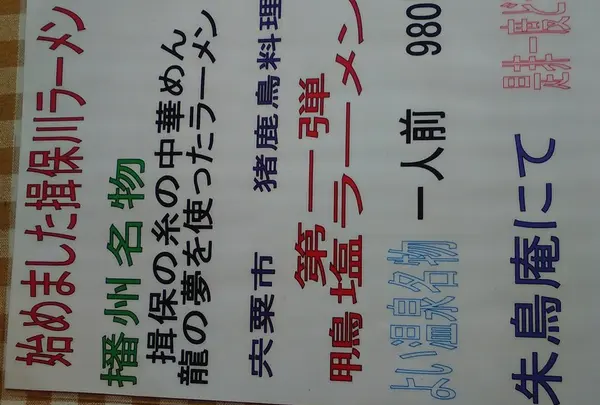 始めました揖保川ラーメン
播州名物
揖保の糸の中華めん
龍の夢を使ったラーメン
宍粟市 猪鹿鳥料理
第一弾
鴨塩ラーメン
よい温泉名物 一人前 980
朱鳥庵にて 是非一度